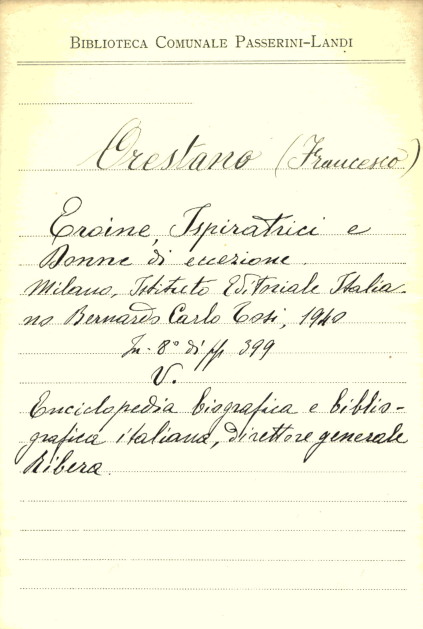 BIBLIOTECA COMUNALE PASSERINI-LANDI
Orestano (Francesco)
Eroine, Ispiratrici e
Donne di eccezione.
Milano, Istituto Editoriale Italia-
no Bernardo Carlo Tosi, 1940
In-8° di pp 399
V.
Enciclopedia biografica e biblio-
grafica italiana, direttore generale
Ribera.